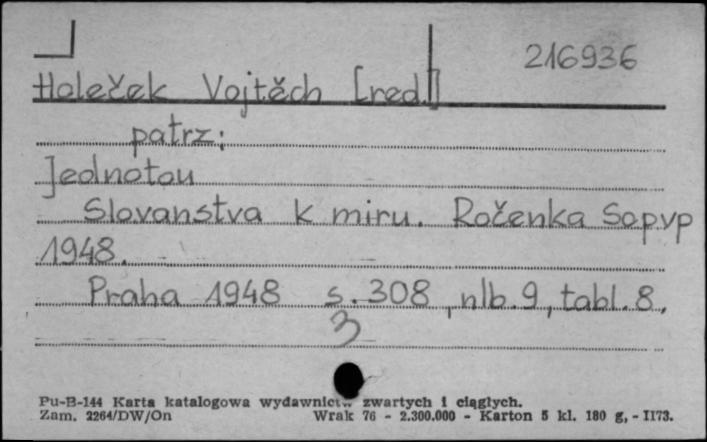 216936
Holeček Vojtěch [red.]
patrz:
Jednotou
Slovanstva k miru. Ročenka Sopvp
1948.
Praha 1948 s. 308, nlb. 9, tabl. 8,
3
Pu-B-144 Karta katalogowa wydawnictw zwartych i ciągłych.
Zam. 2264/DW/On Wrak 76 - 2.300.000 - Karton 5 kl. 180 g, - II73.